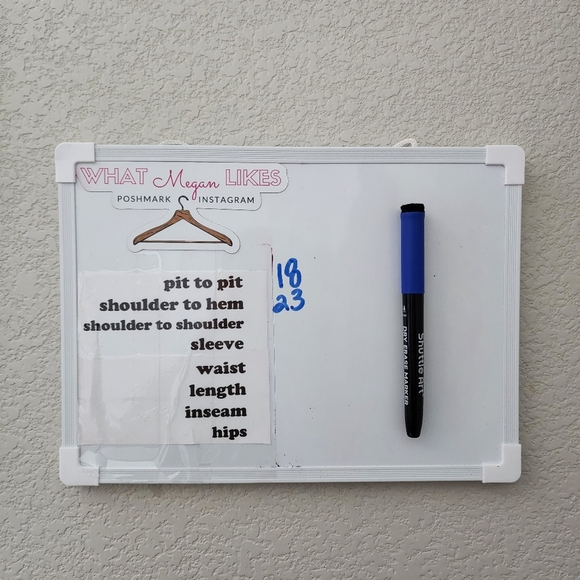 WHAT Megan LIKES
POSHMARK INSTAGRAM
pit to pit 18
shoulder to hem 23
shoulder to shoulder
sleeve
waist
length
inseam
hips
Shuttle Art
DRY ERASE MARKER